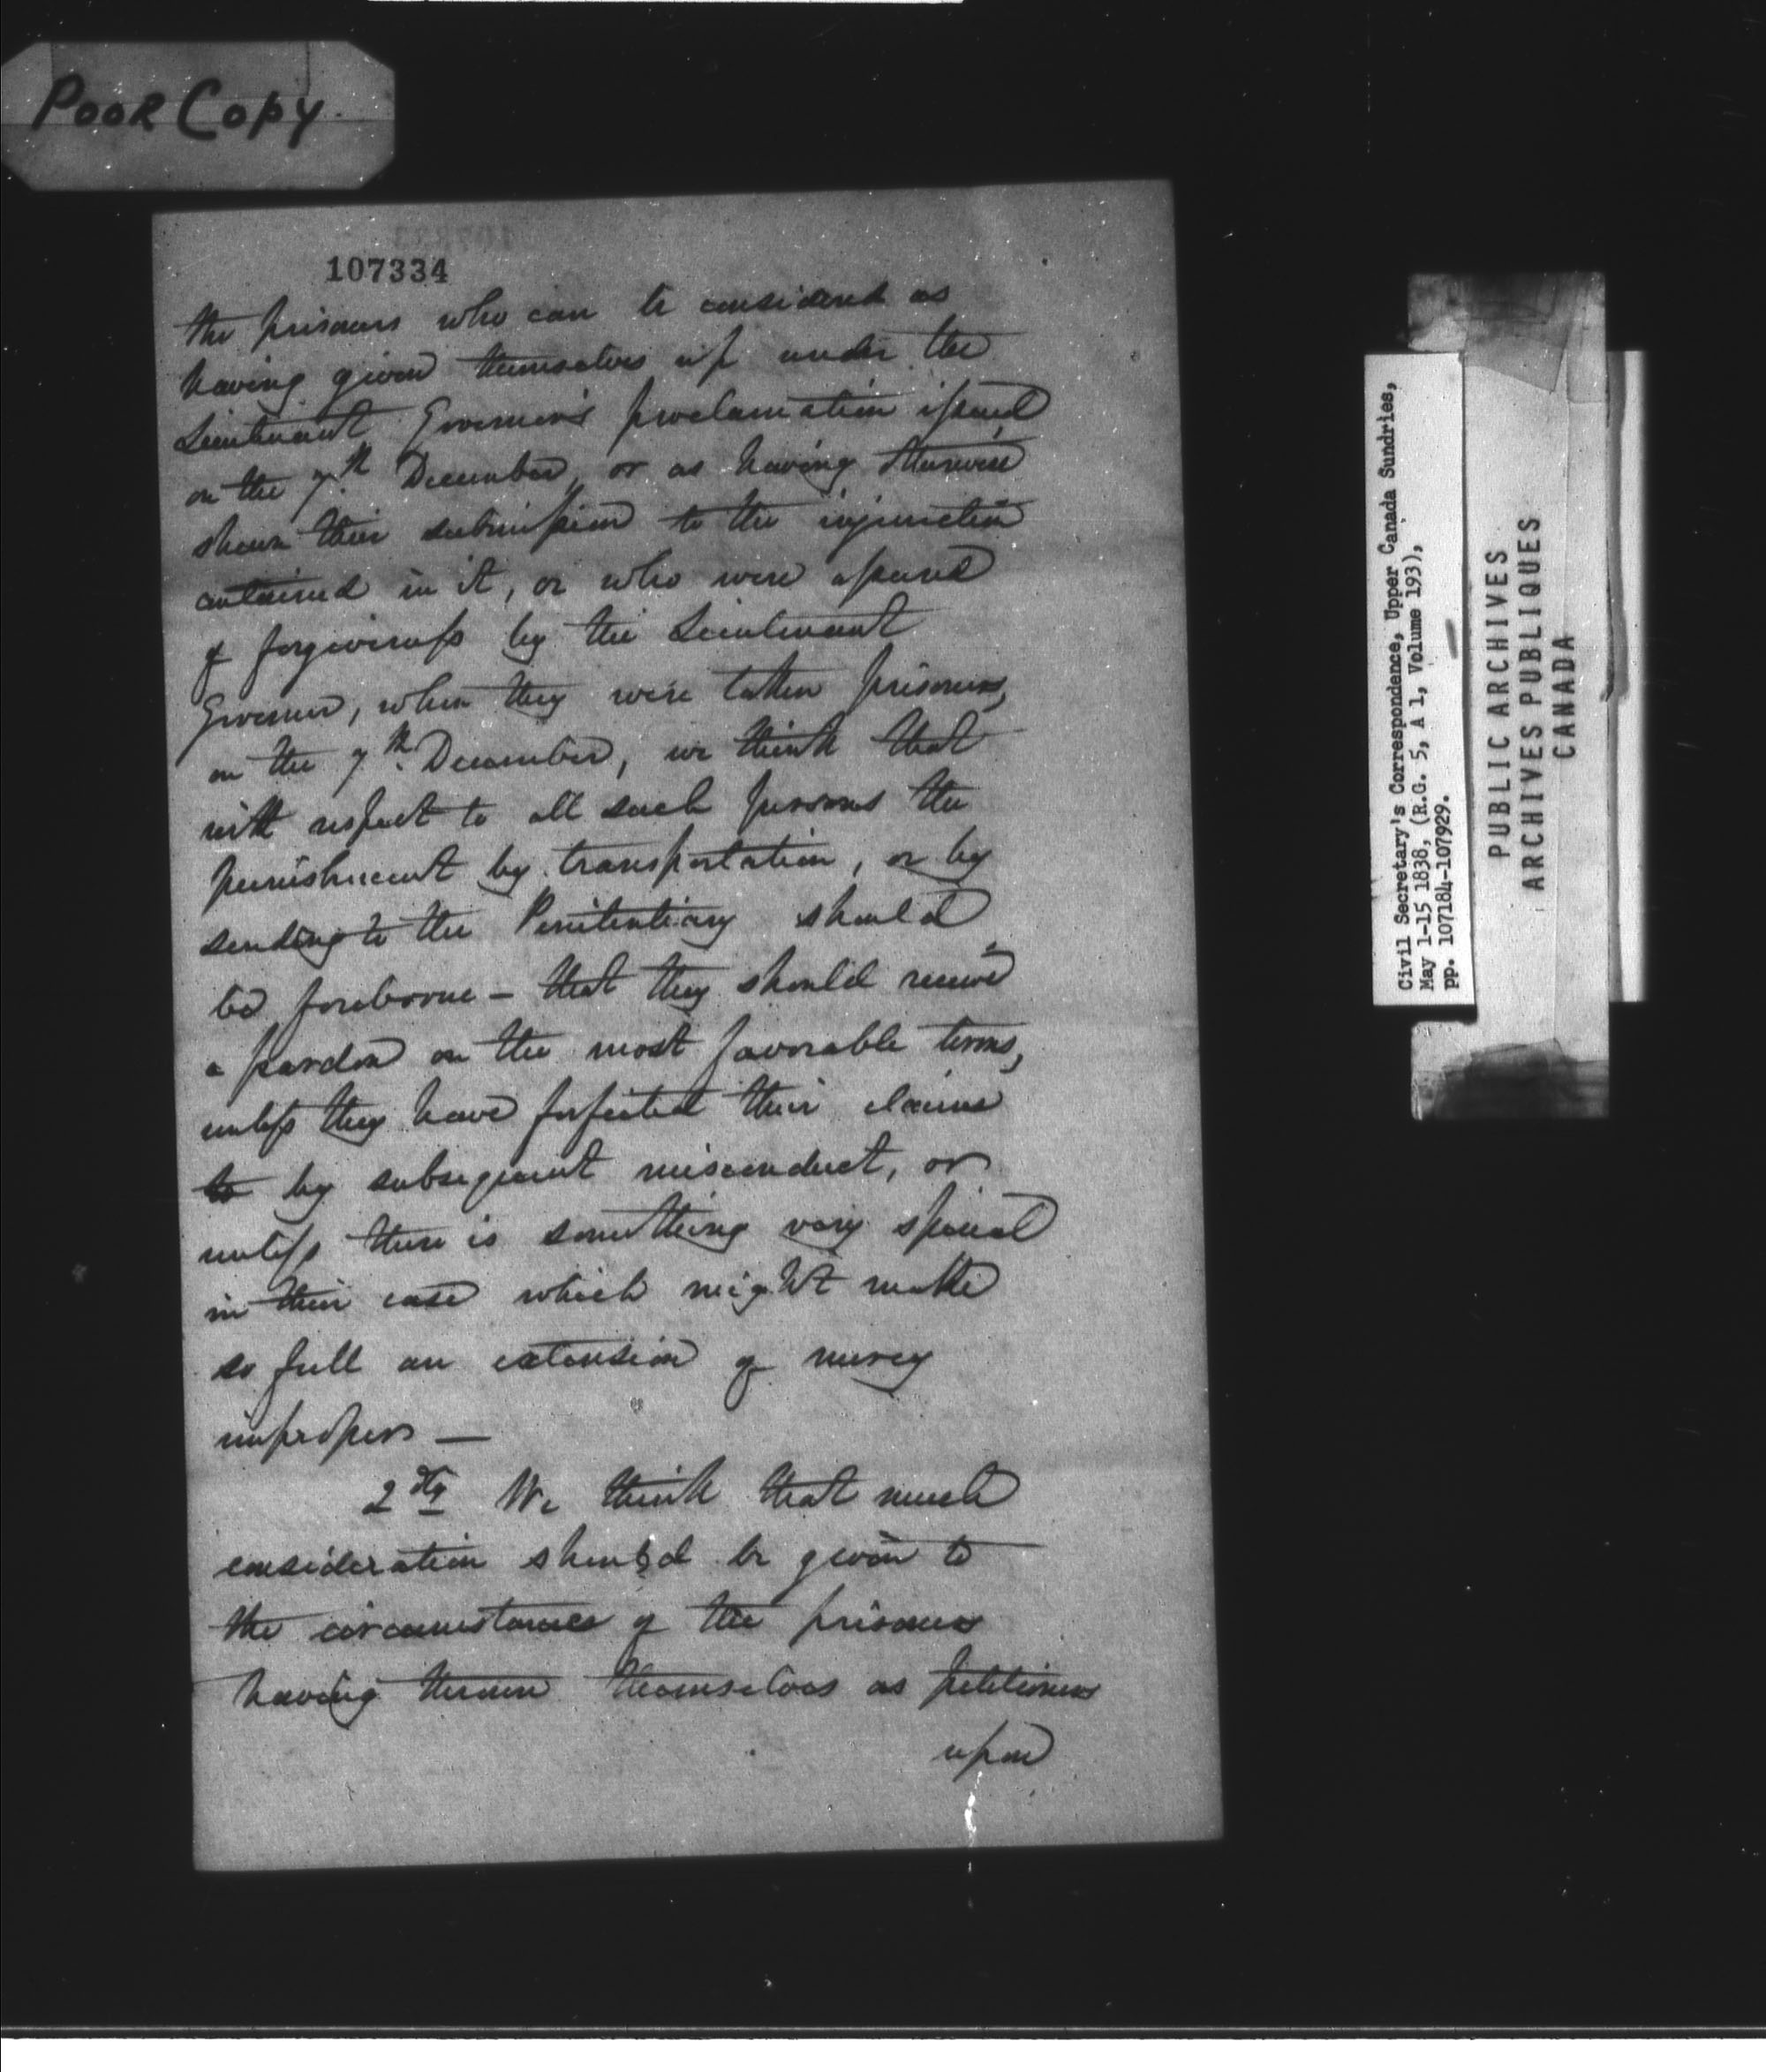 POOR COPY.
107334
the prisoners who can be considered as
having given themselves up under the
Lieutenant Governor's proclamation issued
on the 7th December, or as having otherwise
shewn their submission to the injunction
contained in it, or who were assured
of forgiveness by the Lieutenant
Governor, when they were taken prisoners,
on the 7th December, we think that
with respect to all such persons the
punishment by transportation, or by
sending to the Penitentiary should
be foreborne - that they should receive
a pardon on the most favorable terms,
unless they have forfeited their claims
to by subsequent misconduct, or
unless there is something very special
in their case which might make
so full an extension of mercy
improper —
2dly We think that much
consideration should be given to
the circumstances of the prisoners
having thrown themselves as petitioners
upon
Civil Secretary's Correspondence, Upper Canada Sundries,
May 1-15 1838, (R.G. 5, A 1, Volume 193),
pp. 107184-107929.
PUBLIC ARCHIVES
ARCHIVES PUBLIQUES
CANADA